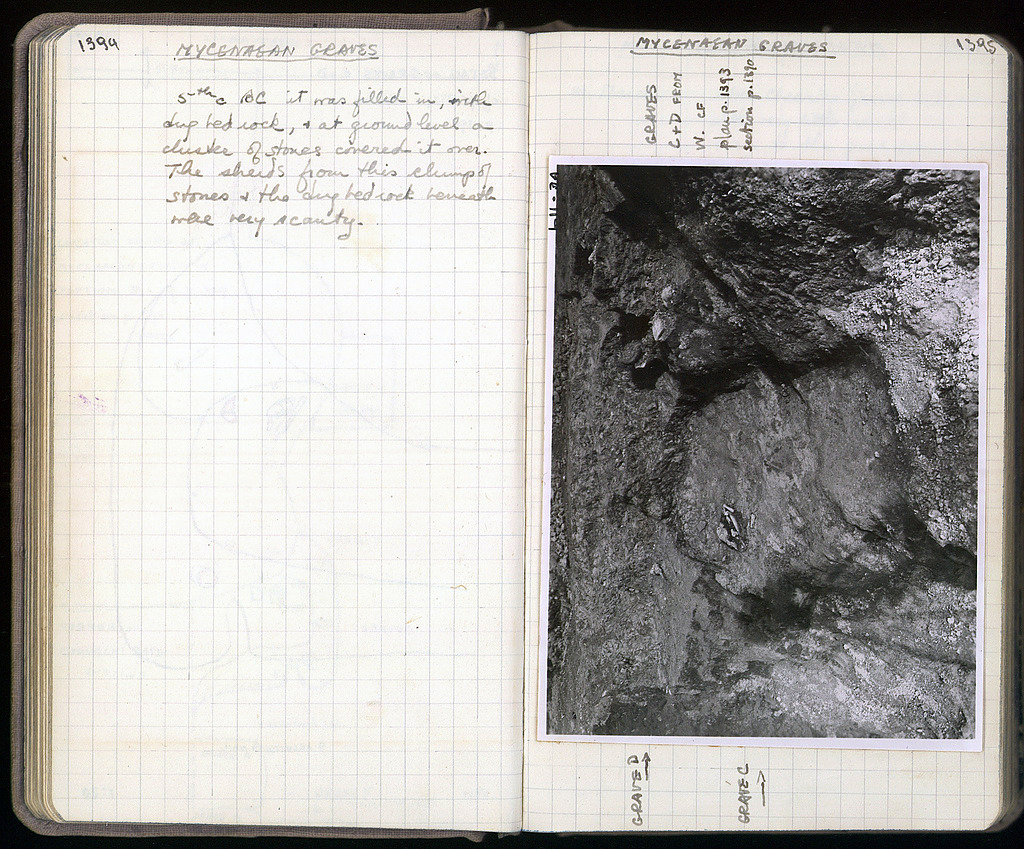 1394
MYCENAEAN GRAVES
5th c BC it was filled in, with
dug bedrock, + at ground level a
cluster of stones covered it over.
The sherds from this clump of
stones + the dug bedrock beneath
were very scanty.
MYCENAEAN GRAVES
1395
GRAVES
C+D FROM
W. CF
plan p. 1393
section p. 1390
GRAVE D →
GRAVE C →